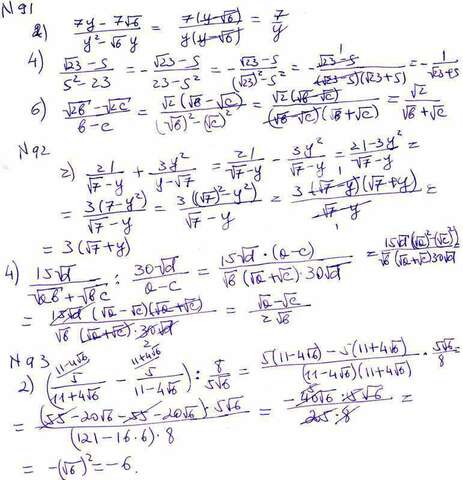 N91
2) (7y − 7√6)/(y² − √6 y) = (7(y−√6))/(y(y−√6)) = 7/y
4) (√23 − 5)/(5² − 23) = −(√23 − 5)/(23 − 5²) = −(√23 − 5)/((√23)² − 5²) = −(√23 − 5)/((√23 − 5)(√23 + 5)) = −1/(√23 + 5)
6) (√2b − √2c)/(b − c) = (√2(√b − √c))/((√b)² − (√c)²) = (√2(√b − √c))/((√b − √c)(√b + √c)) = √2/(√b + √c)
N92
2) 21/(√7 − y) + 3y²/(y − √7) = 21/(√7 − y) − 3y²/(√7 − y) = (21 − 3y²)/(√7 − y) =
= (3(7 − y²))/(√7 − y) = (3((√7)² − y²))/(√7 − y) = (3(√7 − y)(√7 + y))/(√7 − y) =
= 3(√7 + y)
4) 15√d/(√ab + √bc) : 30√d/(a − c) = (15√d · (a − c))/(√b(√a + √c) · 30√d) = (15√d((√a)² − (√c)²))/(√b(√a + √c) 30√d)
= (15√d (√a − √c)(√a + √c))/(√b (√a + √c) · 30√d) = (√a − √c)/(2√b)
N93
2) (5/(11 + 4√6) − 5/(11 − 4√6)) : 8/(5√6) = (5(11 − 4√6) − 5(11 + 4√6))/((11 − 4√6)(11 + 4√6)) · 5√6/8
= ((55 − 20√6 − 55 − 20√6) · 5√6)/((121 − 16·6) · 8) = (−40√6 · 5√6)/(25 · 8) =
= −(√6)² = −6.